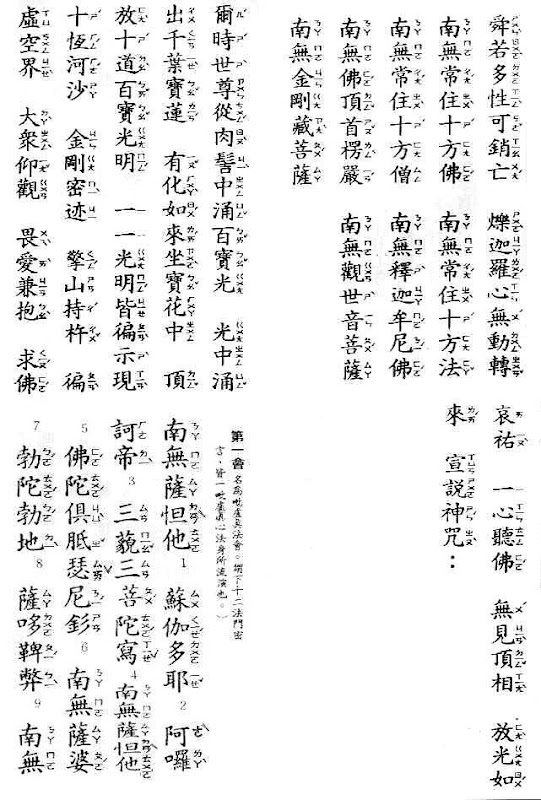 舜若多性可銷亡 爍迦羅心無動轉
南無常住十方佛 南無常住十方法
南無常住十方僧 南無釋迦牟尼佛
南無佛頂首楞嚴 南無觀世音菩薩
南無金剛藏菩薩
爾時世尊從肉髻中涌百寶光 光中涌
出千葉寶蓮 有化如來坐寶花中 頂
放十道百寶光明 一一光明皆徧示現
十恆河沙 金剛密迹 擎山持杵 徧
虛空界 大眾仰觀 畏愛兼抱 求佛
哀祐 一心聽佛 無見頂相 放光如
來 宣說神咒：
第一會 名為毗盧真法會。下十二法門密
言，皆一毗盧真心法身所流演也。）
南無薩怛他 1 蘇伽多耶 2 阿囉
訶帝 3 三藐三菩陀寫 4 南無薩怛他
5 佛陀俱胝瑟尼釤 6 南無薩婆
7 勃陀勃地 8 薩哆鞞弊 9 南無